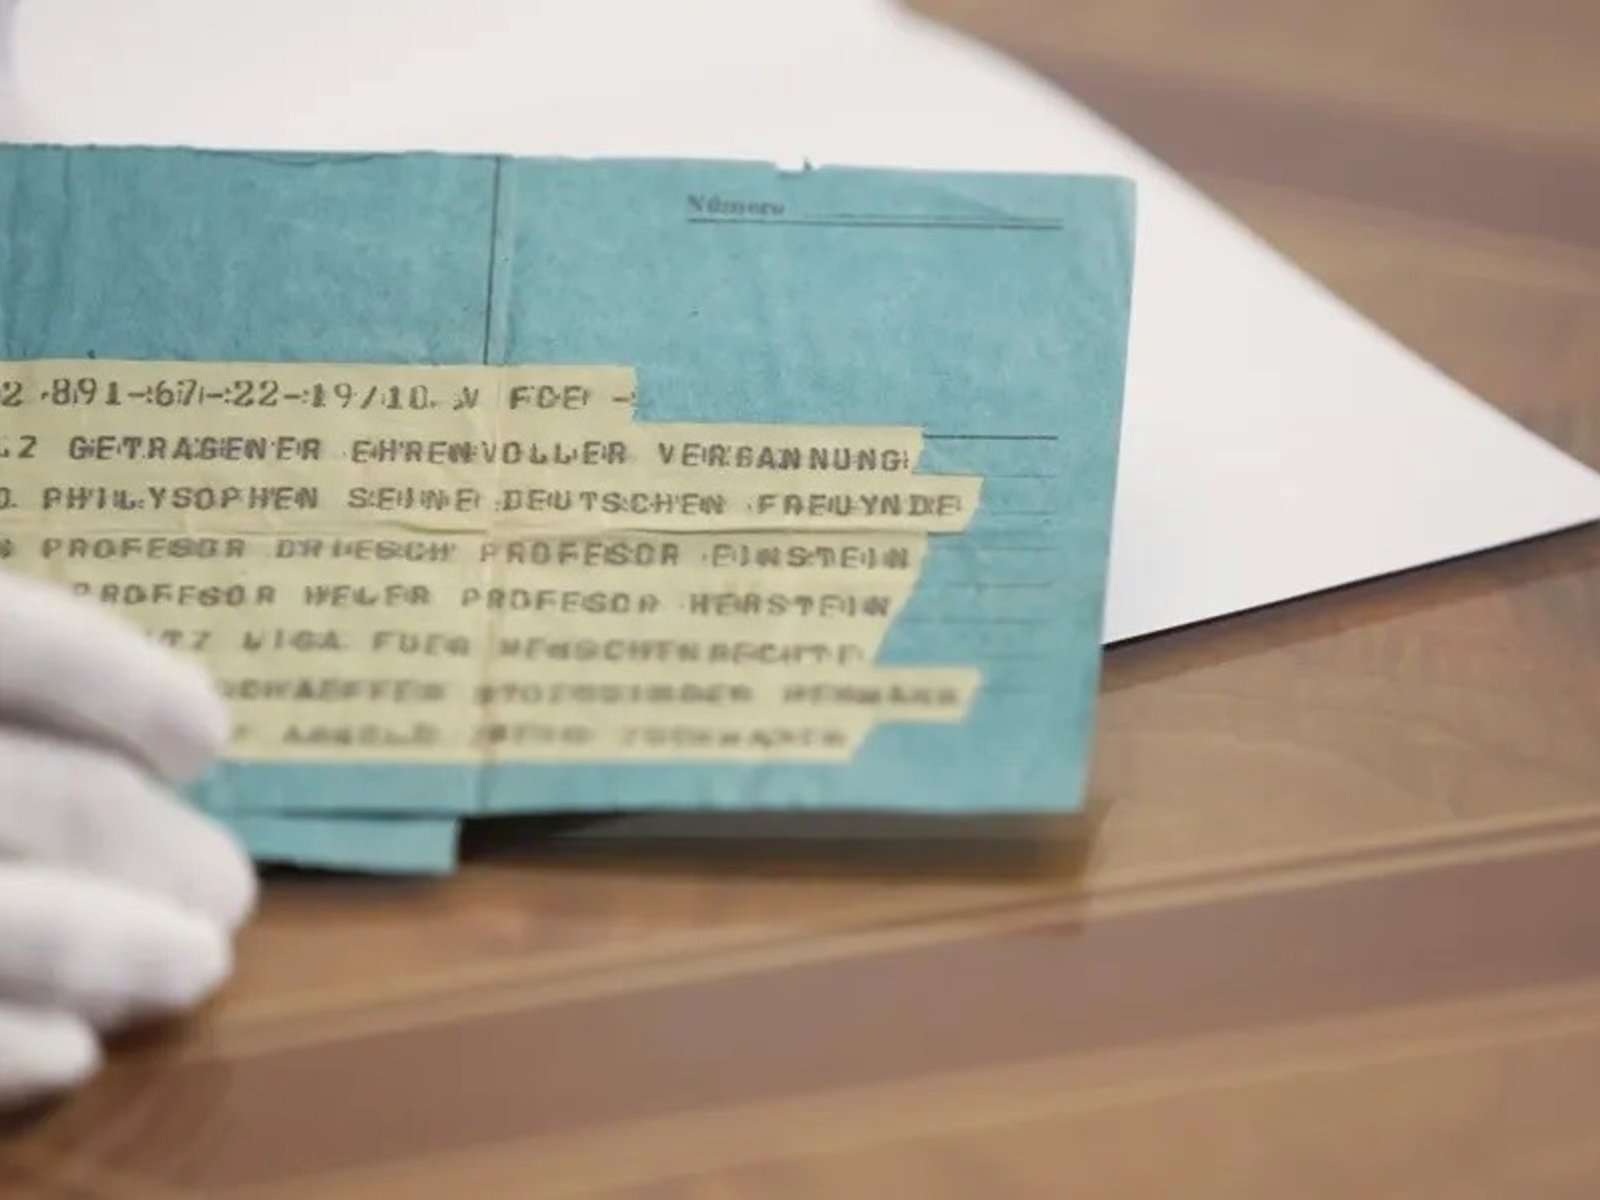 Número
2 -891-:67-:22-:19/10. V FOE -
Z GETRAGENER EHRENVOLLER VERBANNUNG
PHILYSOPHEN SEINE DEUTSCHEN FREUYNDE
PROFESOR DRIESCH PROFESOR EINSTEIN
PROFESOR WELER PROFESOR HERSTEIN
LIGA FUER MENSCHENRECHTE
ARNOLD